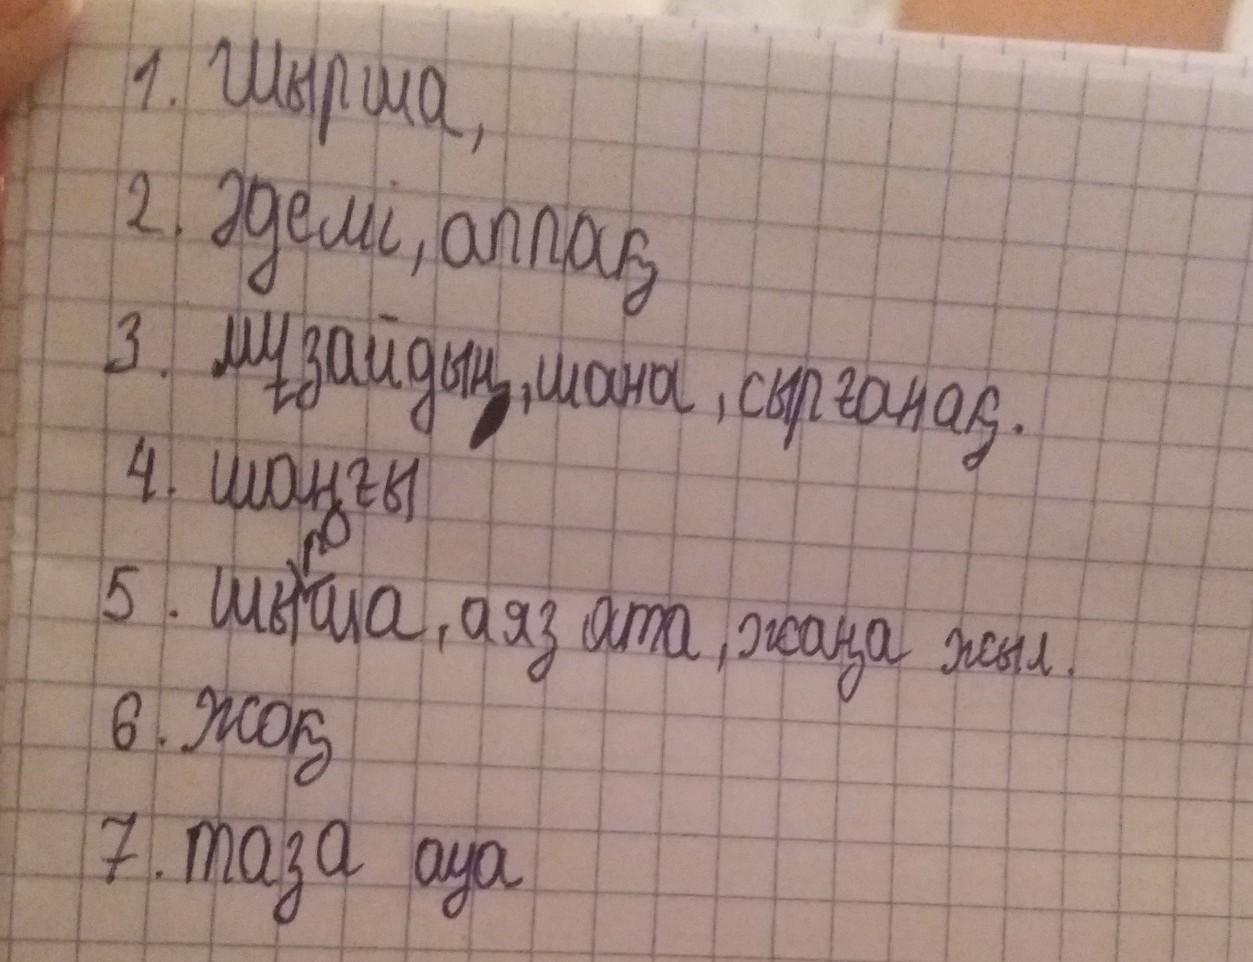 1. Шырша,
2. Әдемі, аппақ
3. мұзайдың, шана, сырғанақ.
4. шаңғы
5. шырша, аяз ата, жаңа жыл.
6. жоқ
7. таза ауа